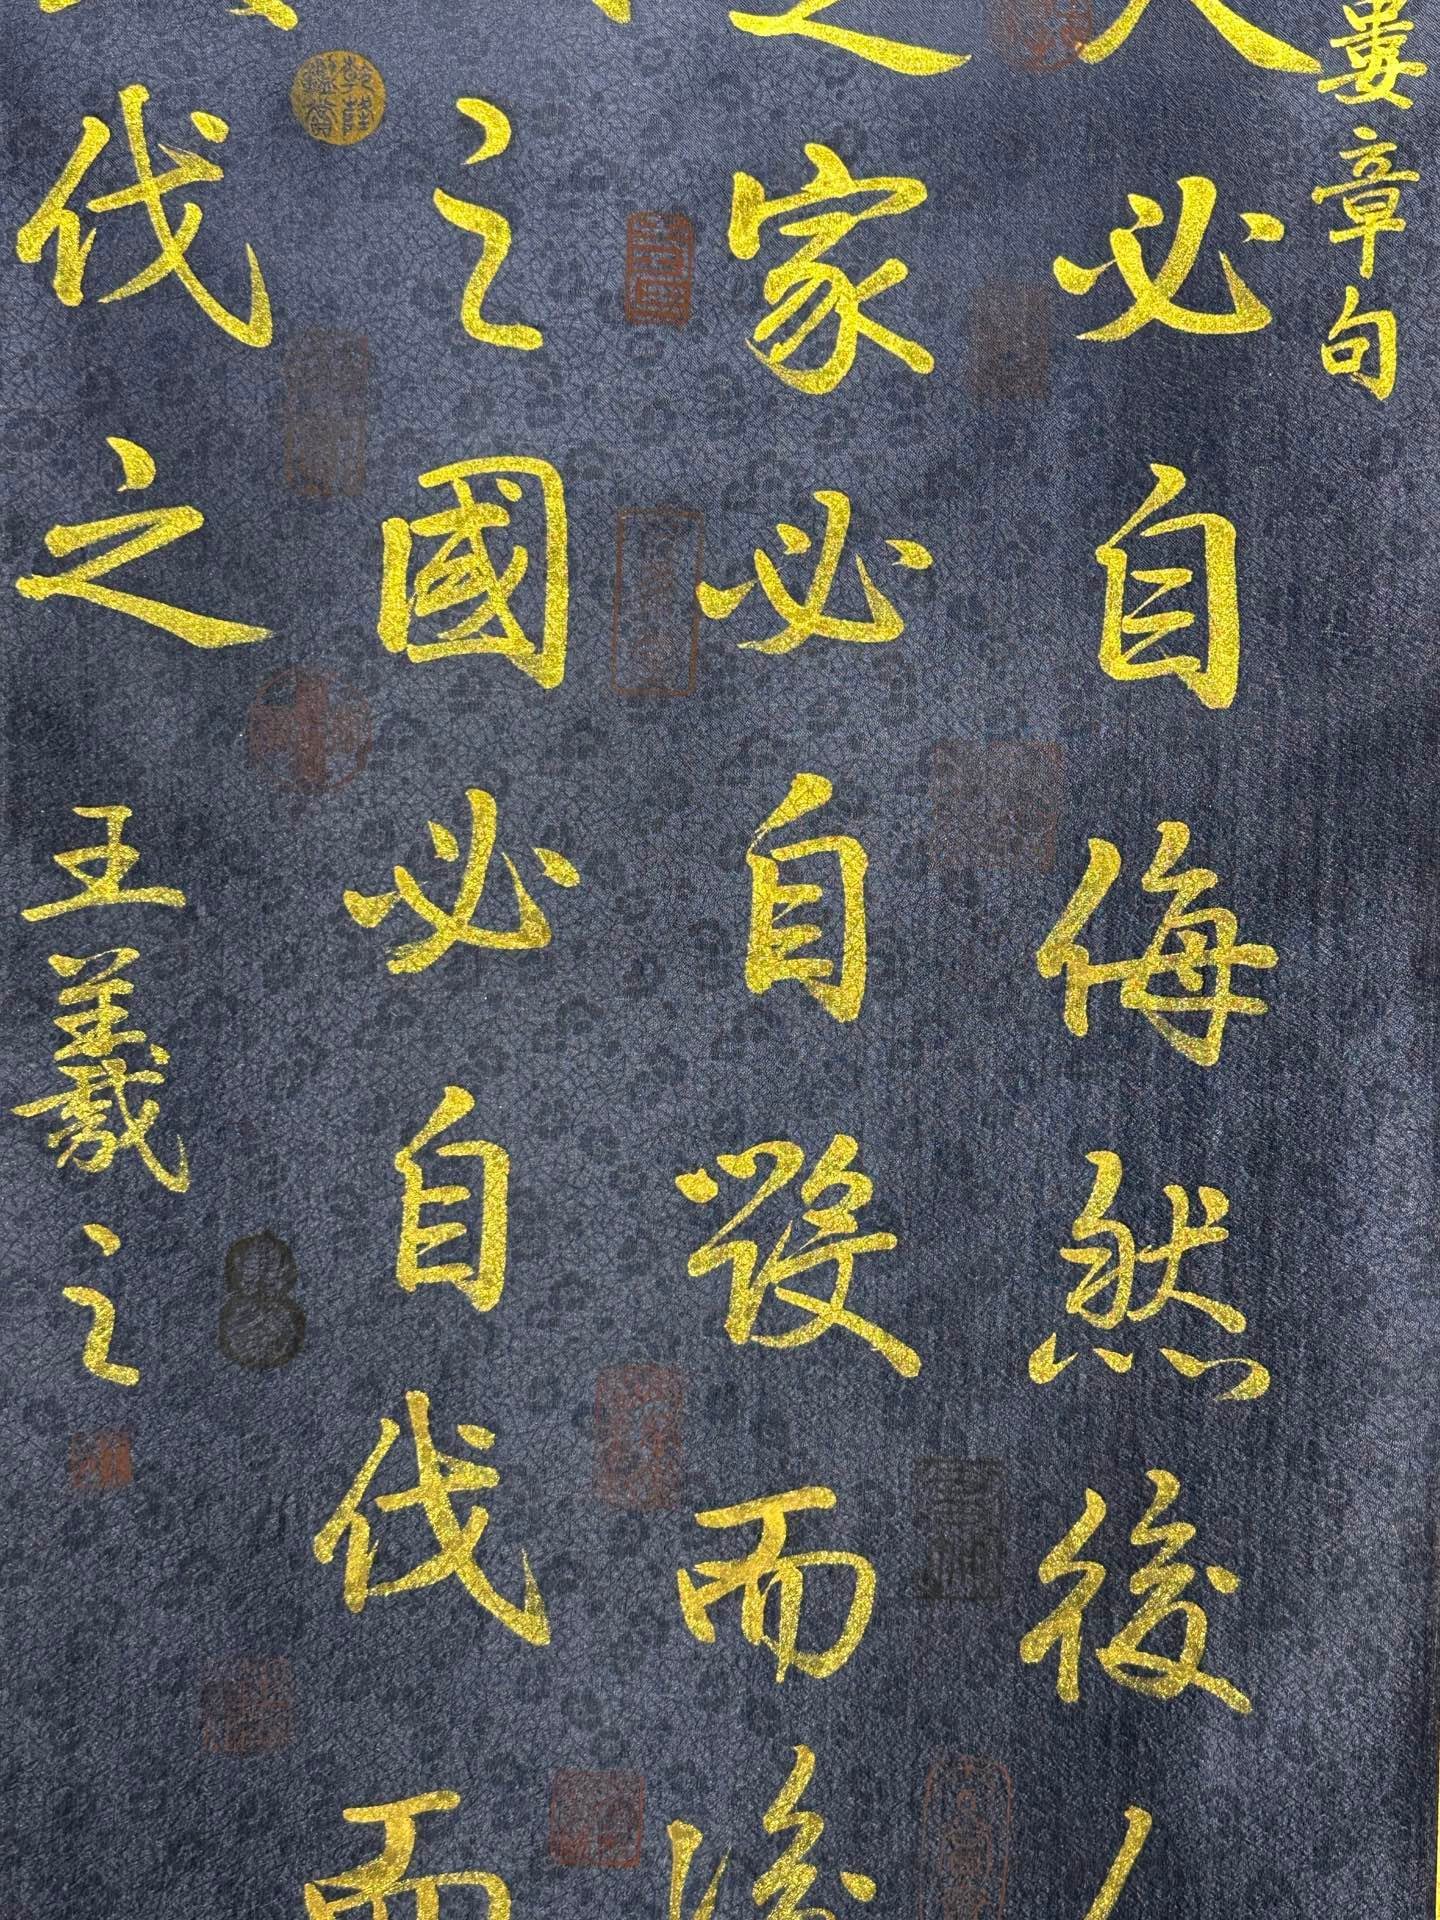 婁章句
必自侮然後人
之家必自毁而後
之國必自伐而
伐之 王羲之